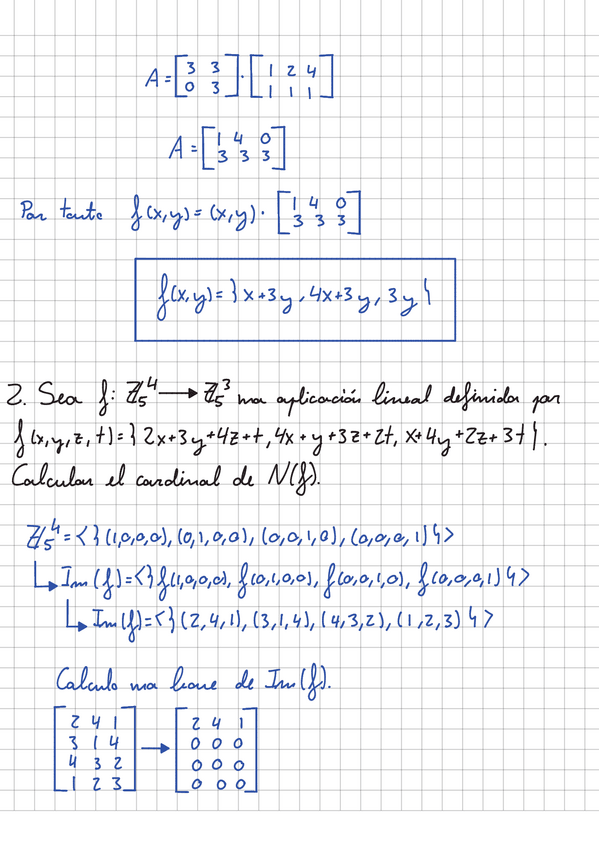 A = [3 3; 0 3] · [1 2 4; 1 1 1]
A = [1 4 0; 3 3 3]
Por tanto f(x,y) = (x,y) · [1 4 0; 3 3 3]
f(x,y) = {x+3y, 4x+3y, 3y}
2. Sea f: ℤ₅⁴ → ℤ₅³ una aplicación lineal definida por
f(x,y,z,t) = {2x+3y+4z+t, 4x+y+3z+2t, x+4y+2z+3t}.
Calcular el cardinal de N(f).
ℤ₅⁴ = <{(1,0,0,0), (0,1,0,0), (0,0,1,0), (0,0,0,1)}>
↳ Im(f) = <{f(1,0,0,0), f(0,1,0,0), f(0,0,1,0), f(0,0,0,1)}>
↳ Im(f) = <{(2,4,1), (3,1,4), (4,3,2), (1,2,3)}>
Calculo una base de Im(f).
[2 4 1; 3 1 4; 4 3 2; 1 2 3] → [2 4 1; 0 0 0; 0 0 0; 0 0 0]